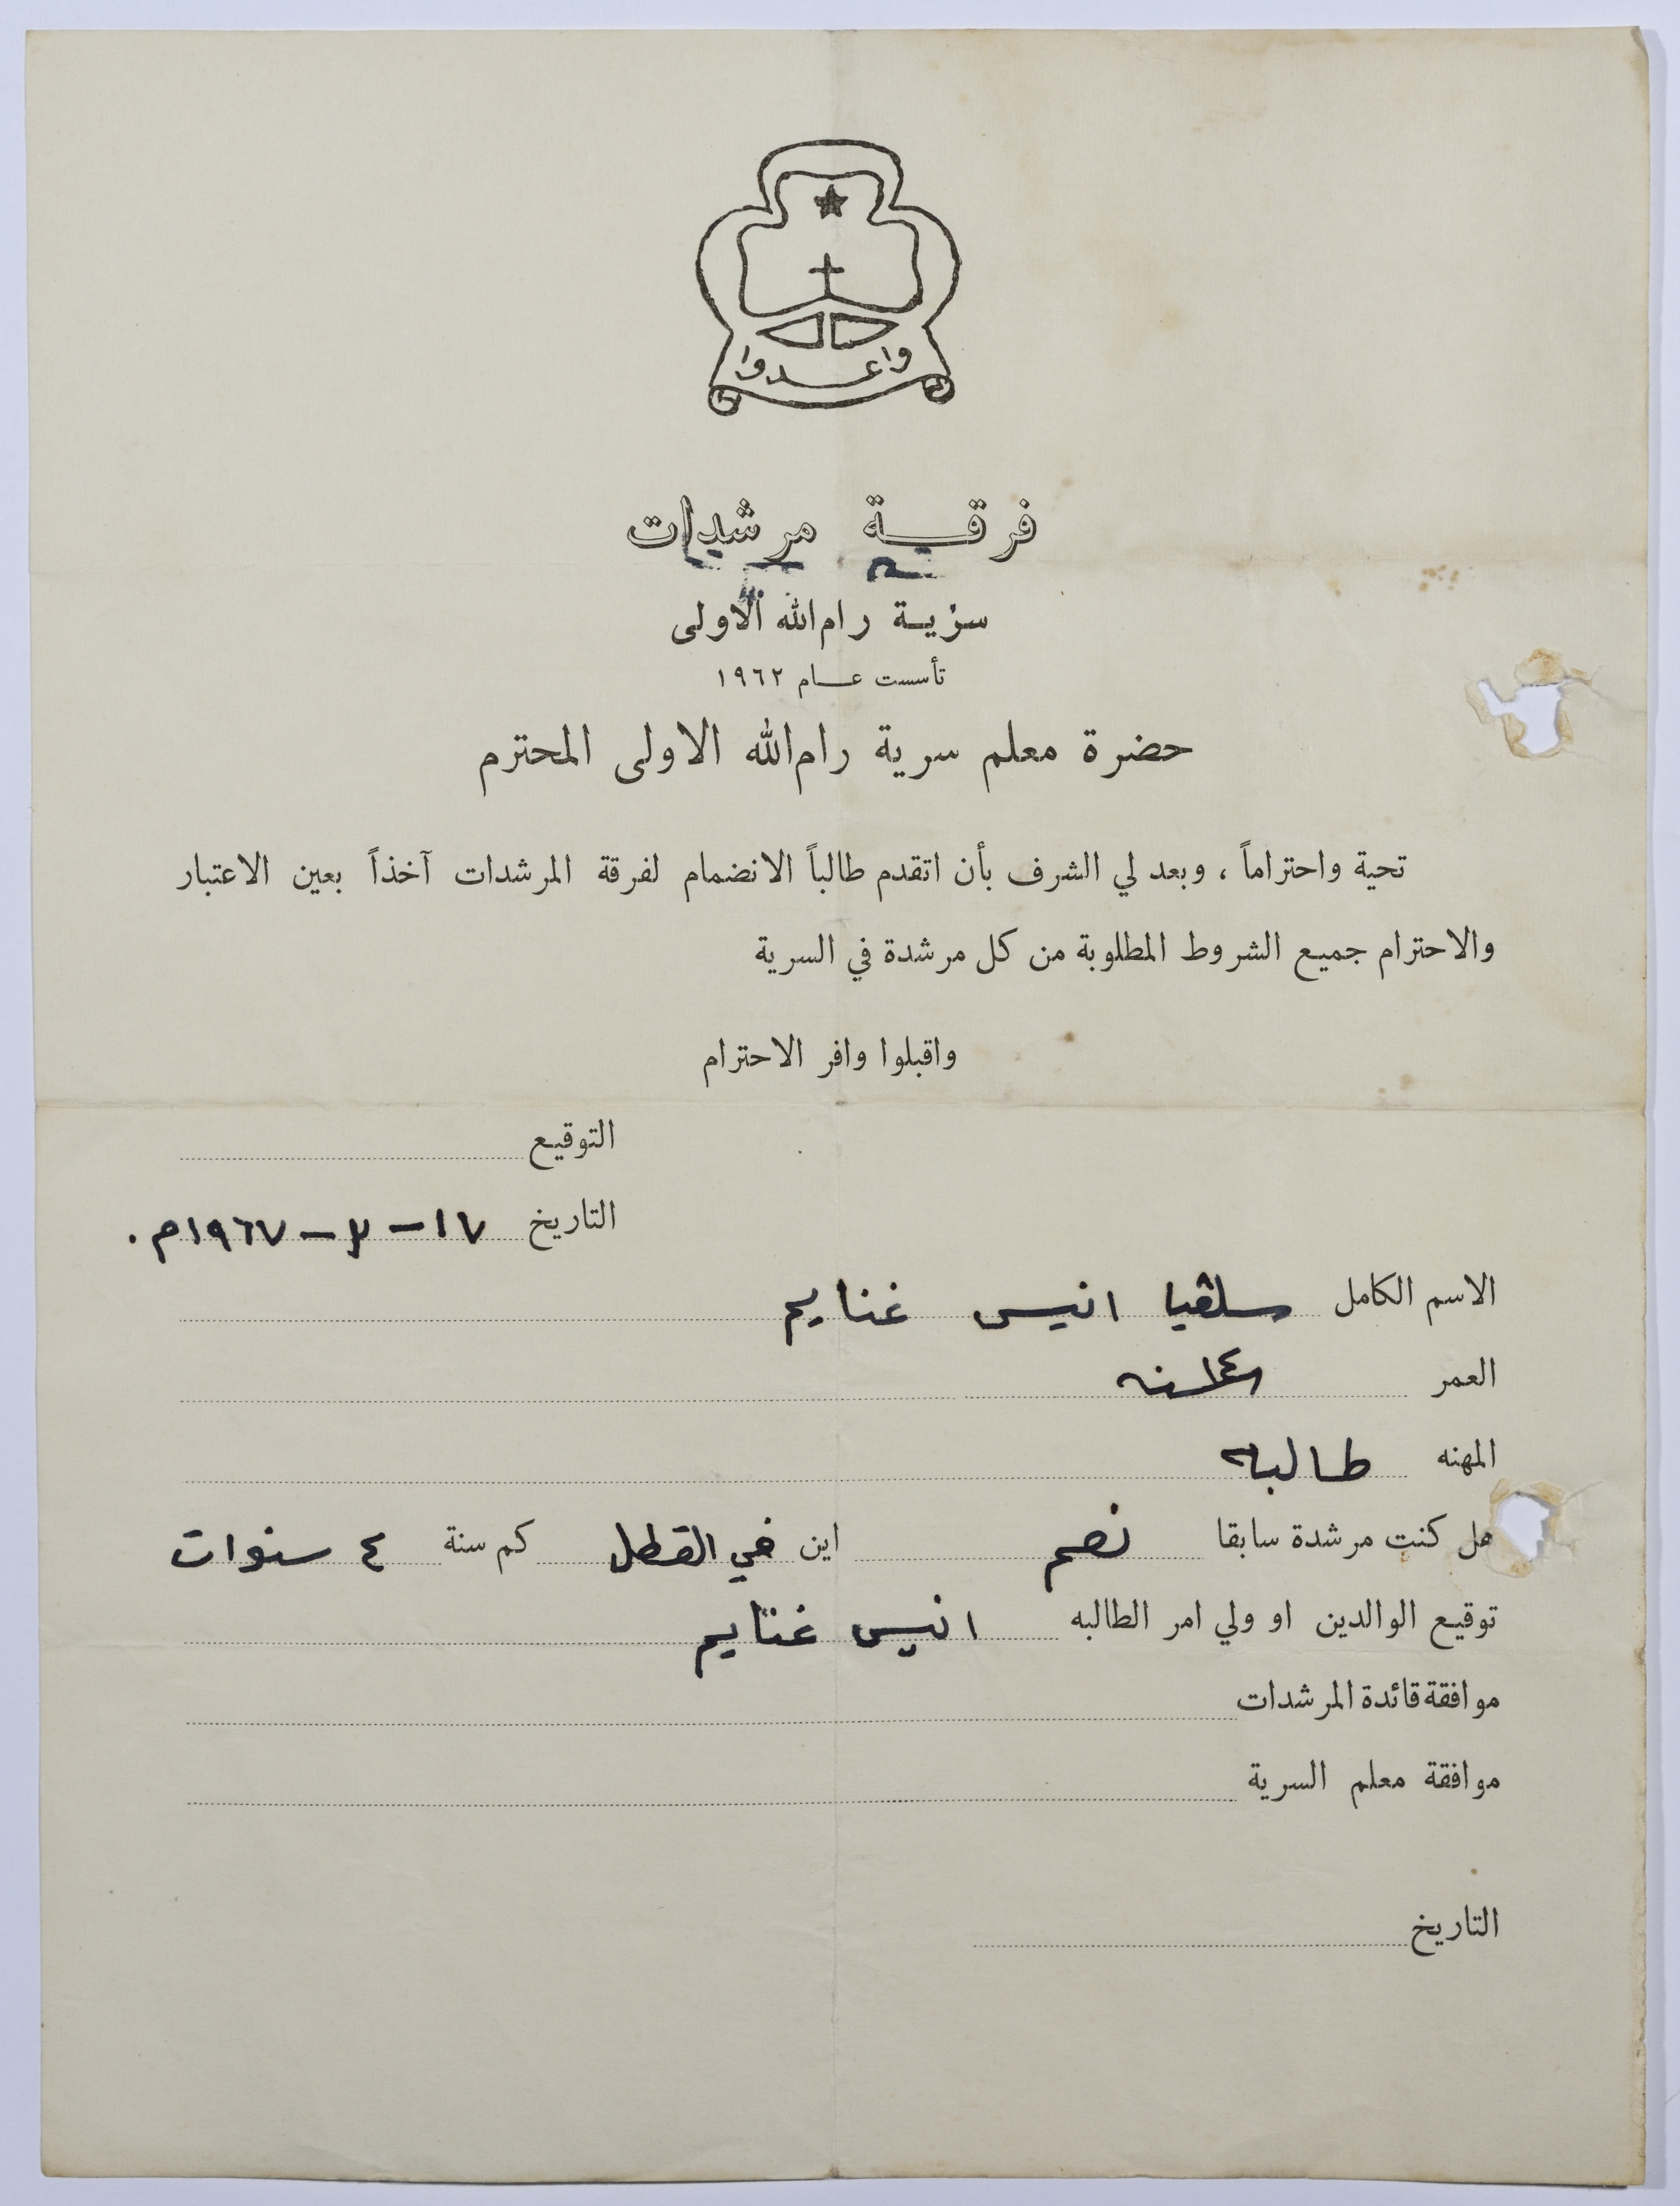 واعدوا
فرقة مرشدات
سرية رام الله الاولى
تأسست عام ١٩٦٢
حضرة معلم سرية رام الله الاولى المحترم
تحية واحتراماً ، وبعد لي الشرف بأن اتقدم طالباً الانضمام لفرقة المرشدات آخذاً بعين الاعتبار
والاحترام جميع الشروط المطلوبة من كل مرشدة في السرية
واقبلوا وافر الاحترام
التوقيع
التاريخ ١٧ - ٣ - ١٩٦٧م.
الاسم الكامل سلڤيا انيس غنايم
العمر ١٤ سنه
المهنه طالبه
هل كنت مرشدة سابقا نعم اين في القطل كم سنة ٤ سنوات
توقيع الوالدين او ولي امر الطالبه انيس غنايم
موافقة قائدة المرشدات
موافقة معلم السرية
التاريخ